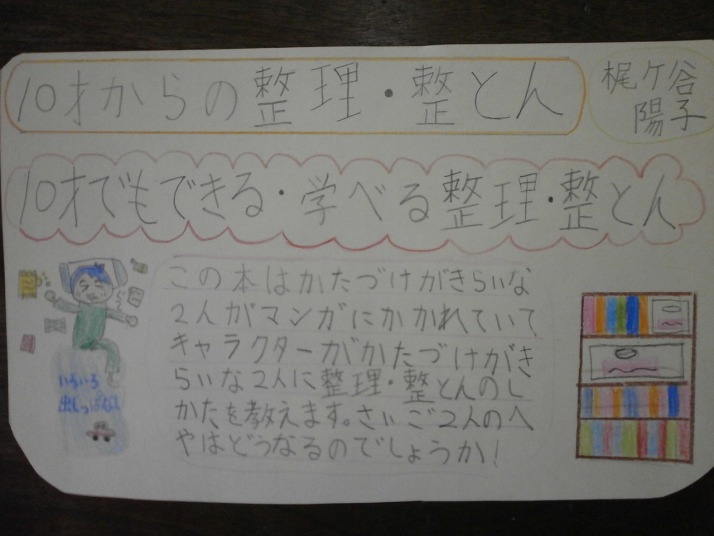 10才からの整理・整とん
梶ケ谷
陽子
10才でもできる・学べる整理・整とん
この本はかたづけがきらいな
2人がマンガにかかれていて
キャラクターがかたづけがき
らいな2人に整理・整とんのし
かたを教えます。さいご2人のへ
やはどうなるのでしょうか!
いろいろ
出しっぱなし